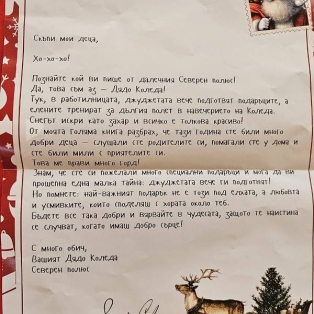 Скъпи мои деца,
Хо-хо-хо!
Познайте кой ви пише от далечния Северен полюс!
Да, това съм аз – Дядо Коледа!
Тук, в работилницата, джуджетата вече подготвят подаръците, а
елените тренират за дългия полет в навечерието на Коледа.
Снегът искри като захар и всичко е толкова красиво!
От моята голяма книга разбрах, че тази година сте били много
добри деца – слушали сте родителите си, помагали сте у дома и
сте били мили с приятелите си.
Това ме прави много горд!
Знам, че сте си пожелали много специални подаръци и мога да ви
прошепна една малка тайна: джуджетата вече ги подготвят!
Но помнете: най-важният подарък не е този под елхата, а любовта
и усмивките, които споделяш с хората около теб.
Бъдете все така добри и вярвайте в чудесата, защото те наистина
се случват, когато имаш добро сърце!
С много обич,
Вашият Дядо Коледа
Северен полюс